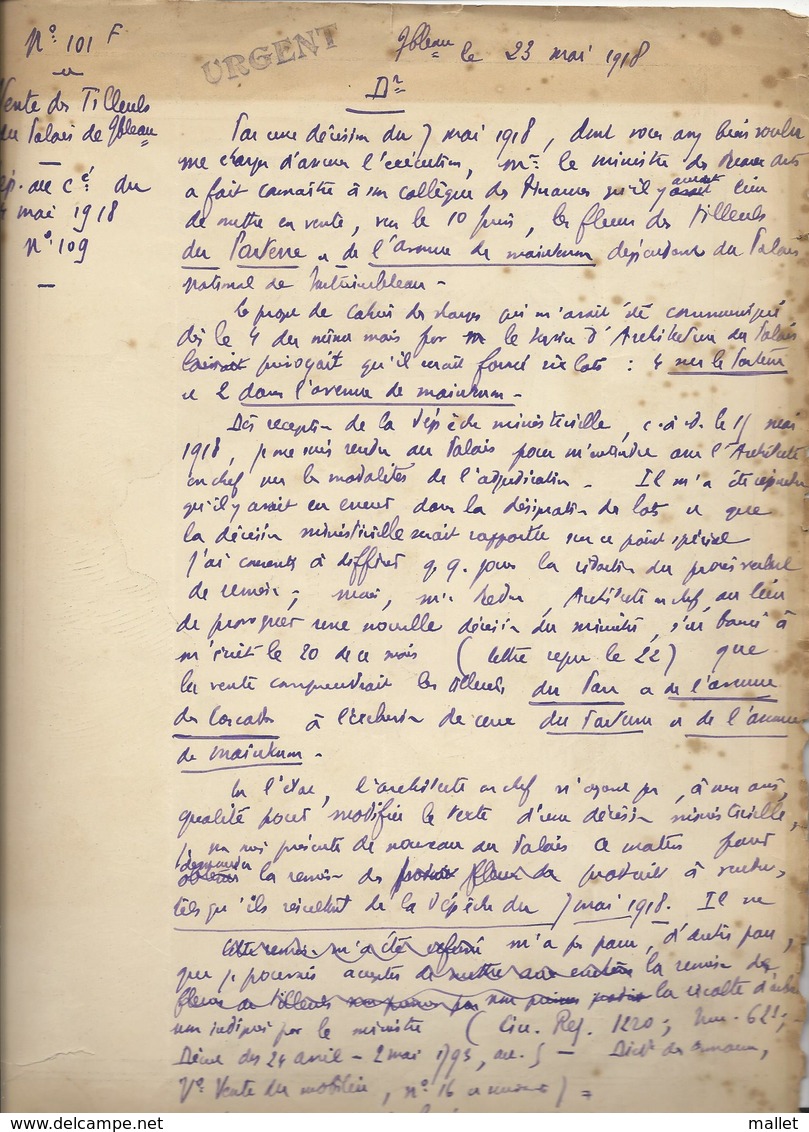 N° 101 F
URGENT
Fbleau le 23 mai 1918
Vente des Tilleuls
du Palais de Fbleau
Dr
mai 1918
N° 109
Par une décision du 7 mai 1918, dont vous avez bien voulu
me charger d'assurer l'exécution, Mr le ministre des Beaux arts
a fait connaître à son collègue des Finances qu'il y avait lieu
de mettre en vente, vers le 10 Juin, les fleurs des Tilleuls
du Parterre et de l'avenue de maintenon dépendant du Palais
national de Fontainebleau -
Le projet de cahier des charges qui m'avait été communiqué
dès le 4 du même mois par le service d'Architecture du Palais
prévoyait qu'il serait formé six lots : 4 sur le Parterre
et 2 dans l'avenue de maintenon -
Dès réception de la dépêche ministérielle, c. à d. le 15 mai
1918, je me suis rendu au Palais pour m'entendre avec l'Architecte
en chef sur les modalités de l'adjudication - Il m'a été répondu
qu'il y avait eu erreur dans la désignation des lots et que
la décision ministérielle serait rapportée sur ce point spécial
J'ai consenti à différer q.q. jours la rédaction du procès verbal
de remise ; mais, Mr Architecte en chef, au lieu
de provoquer une nouvelle décision du ministre, s'est borné à
m'écrire le 20 de ce mois (lettre reçue le 22) que
la vente comprendrait les tilleuls du Parc et de l'avenue
des Cascades à l'exclusion de ceux du Parterre et de l'avenue
de Maintenon -
En l'état, l'architecte en chef n'ayant pas, à mon avis,
qualité pour modifier le texte d'une décision ministérielle,
je me suis présenté de nouveau au Palais ce matin pour
demander la remise des produits à vendre,
tels qu'ils résultent de la dépêche du 7 mai 1918. Il ne
m'a pas paru, d'autre part,
que je pouvais accepter la remise des
la récolte d'arbres
non indiqués par le ministre (Circ. Reg. 1220 ;
Décret des 24 avril - 2 mai 1793, art. 5 - Dict. des Domaines,
V° Vente de mobilier, n° 16